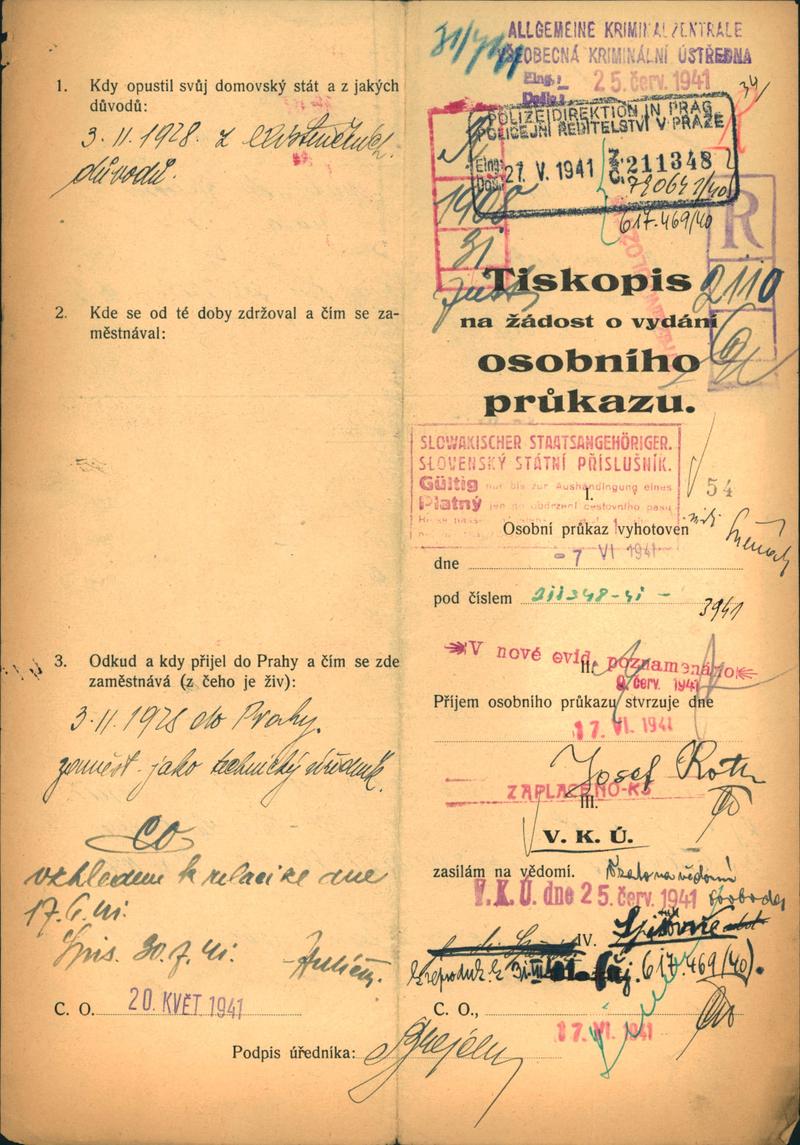 1. Kdy opustil svůj domovský stát a z jakých
důvodů:
3. II. 1928. z existenčních
důvodů.
2. Kde se od té doby zdržoval a čím se za-
městnával:
3. Odkud a kdy přijel do Prahy a čím se zde
zaměstnává (z čeho je živ):
3. II. 1928 do Prahy.
zaměst. jako technický úředník.
CO
vzhledem k relaci ze dne
17.6.41.
30.7.41.
C. O. 20. KVĚT 1941
Podpis úředníka:
ALLGEMEINE KRIMINALZENTRALE
VŠEOBECNÁ KRIMINÁLNÍ ÚSTŘEDNA
Eing.:
Došlo: 25. červ. 1941
34
POLIZEIDIREKTION IN PRAG
POLICEJNÍ ŘEDITELSTVÍ V PRAZE
Eing.
Došlo 27. V. 1941 Z. Č. 211348
617.469/40
1908
31
R
2110
Tiskopis
na žádost o vydání
osobního
průkazu.
SLOWAKISCHER STAATSANGEHÖRIGER.
SLOVENSKÝ STÁTNÍ PŘÍSLUŠNÍK.
Gültig nur bis zur Aushändigung eines
Platný jen do obdržení cestovního pasu
54
I.
Osobní průkaz vyhotoven
dne - 7 VI 1941
pod číslem 211348-41 -
3941
V nové evid. poznamenáno
II.
9. červ. 1941
Příjem osobního průkazu stvrzuje dne
17. VI. 1941
Josef Roth
ZAPLACENO-Kš
III.
V. K. Ú.
zasílám na vědomí.
V.K.U. dne 25. červ. 1941
IV.
617 469/40).
C. O.,
17. VI. 1941